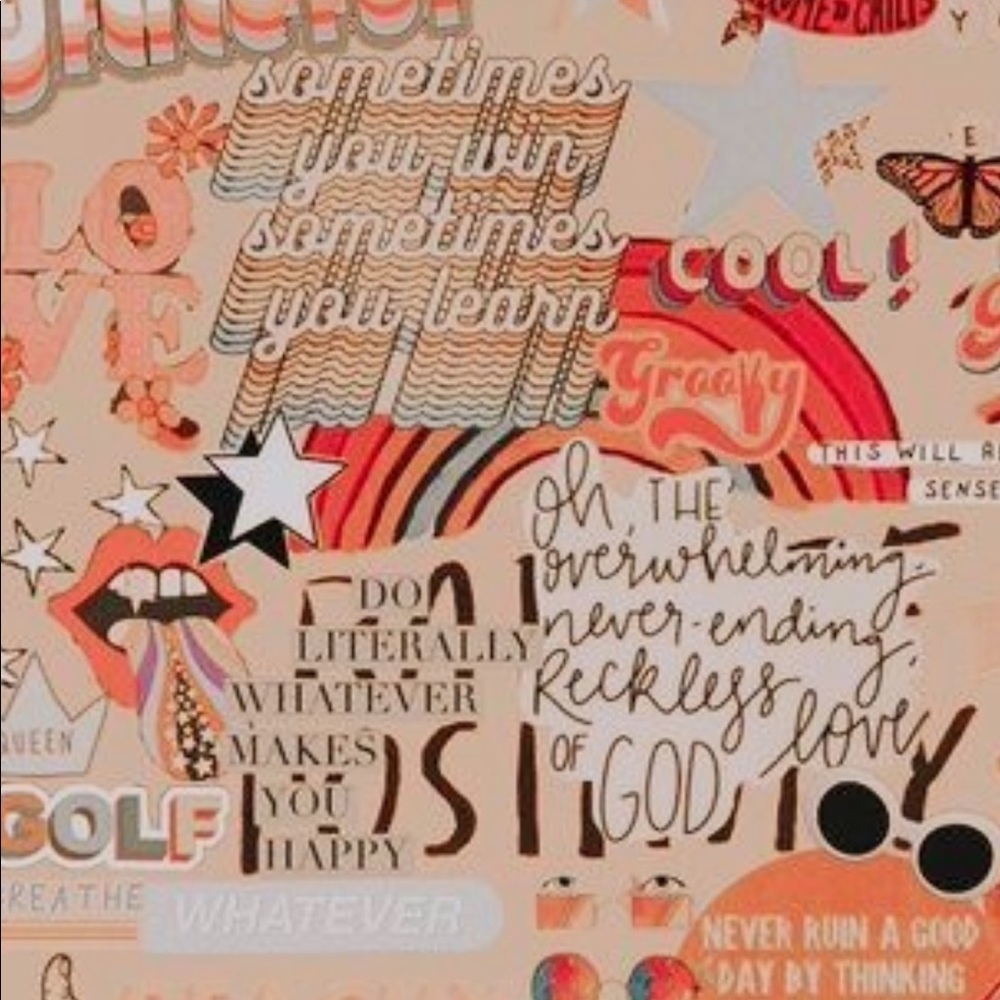 sometimes
you win
sometimes
you learn
LO
VE
COOL!
Groovy
E
Y
THIS WILL
SENSE
Oh, THE
overwhelming,
never-ending,
Reckless
love
OF GOD
DO
LITERALLY
WHATEVER
MAKES
YOU
HAPPY
QUEEN
GOLF
BREATHE
WHATEVER
NEVER RUIN A GOOD
DAY BY THINKING